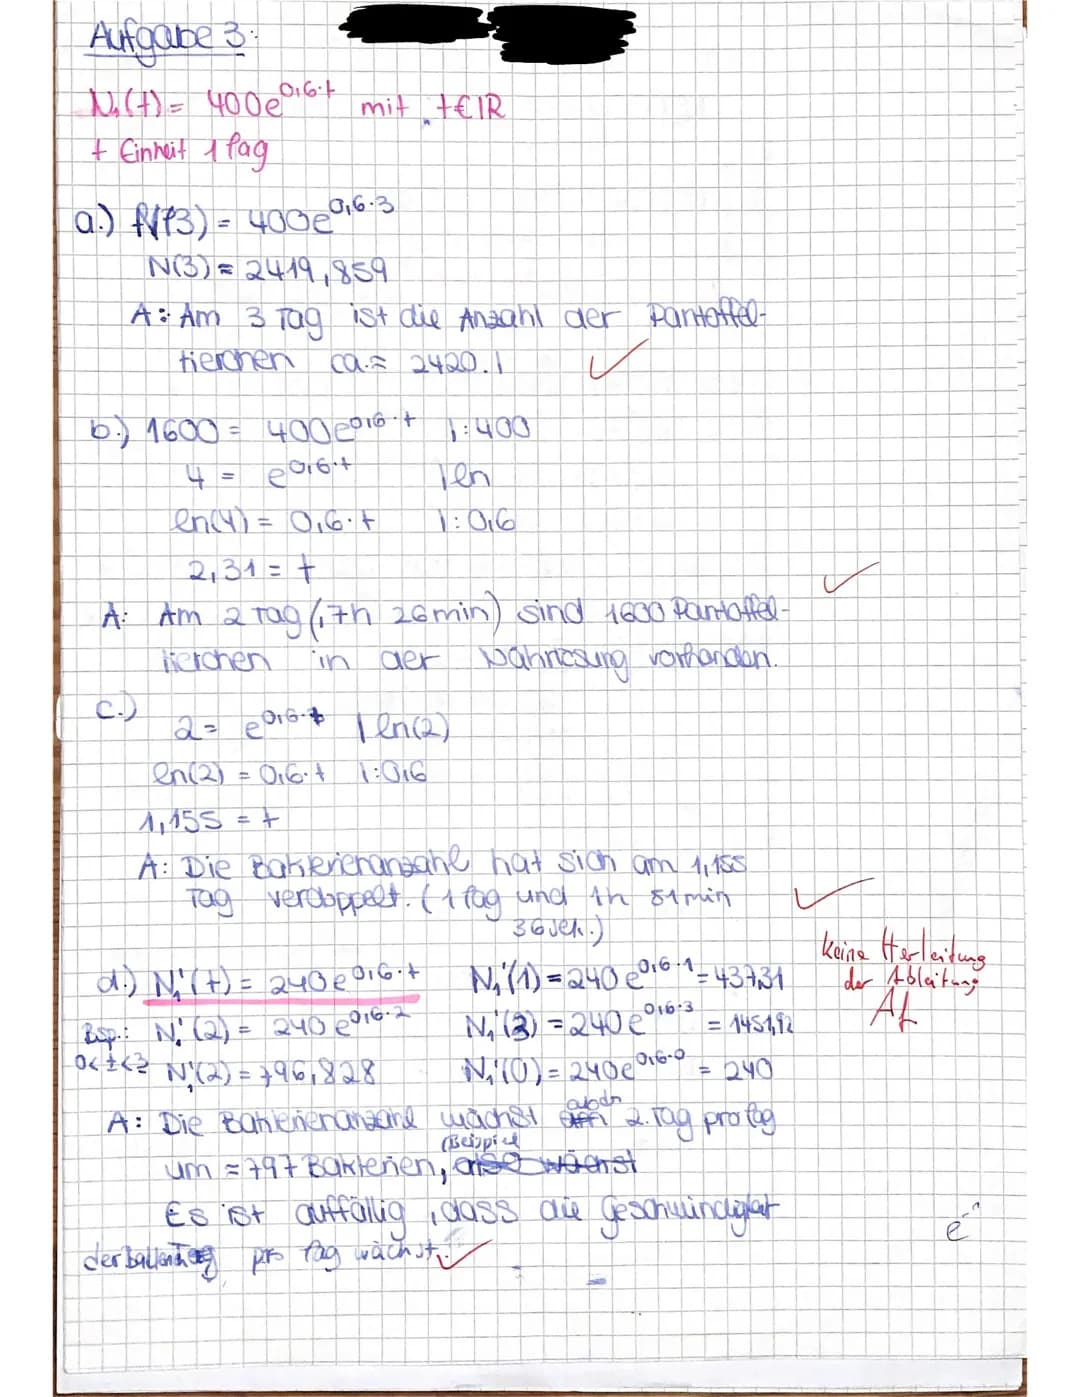 Aufgabe 3:
N₁(t) = 400e^0,6·t mit t∈ℝ
t Einheit 1 Tag
a.) N(3) = 400e^0,6·3
N(3) ≈ 2419,859
A: Am 3 Tag ist die Anzahl der Pantoffel-
tierchen ca.≈ 2420.
b.) 1600 = 400e^0,6·t |:400
4 = e^0,6·t |ln
ln(4) = 0,6·t |:0,6
2,31 = t
A: Am 2 Tag (7h 26min) sind 1600 Pantoffel-
tierchen in der vorhanden.
c.)
2 = e^0,6·t | ln(2)
ln(2) = 0,6·t |:0,6
1,155 = t
A: Die Bakterienanzahl hat sich am 1,155
Tag verdoppelt. (1 Tag und 1h 51min
36sek.)
keine Herleitung
der Ableitung
d.) N₁'(t) = 240e^0,6·t N₁'(1) = 240e^0,6·1 = 437,31
Bsp.: N₁'(2) = 240e^0,6·2 N₁'(3) = 240e^0,6·3 = 1451,92
N₁'(2) = 796,828 N₁'(0) = 240e^0,6·0 = 240
A: Die Bakterienanzahl wächst 2. Tag pro Tag
(Beispiel
um ≈ 797 Bakterien,
Es ist auffällig, dass die Geschwindigkeit
pro Tag wächst.